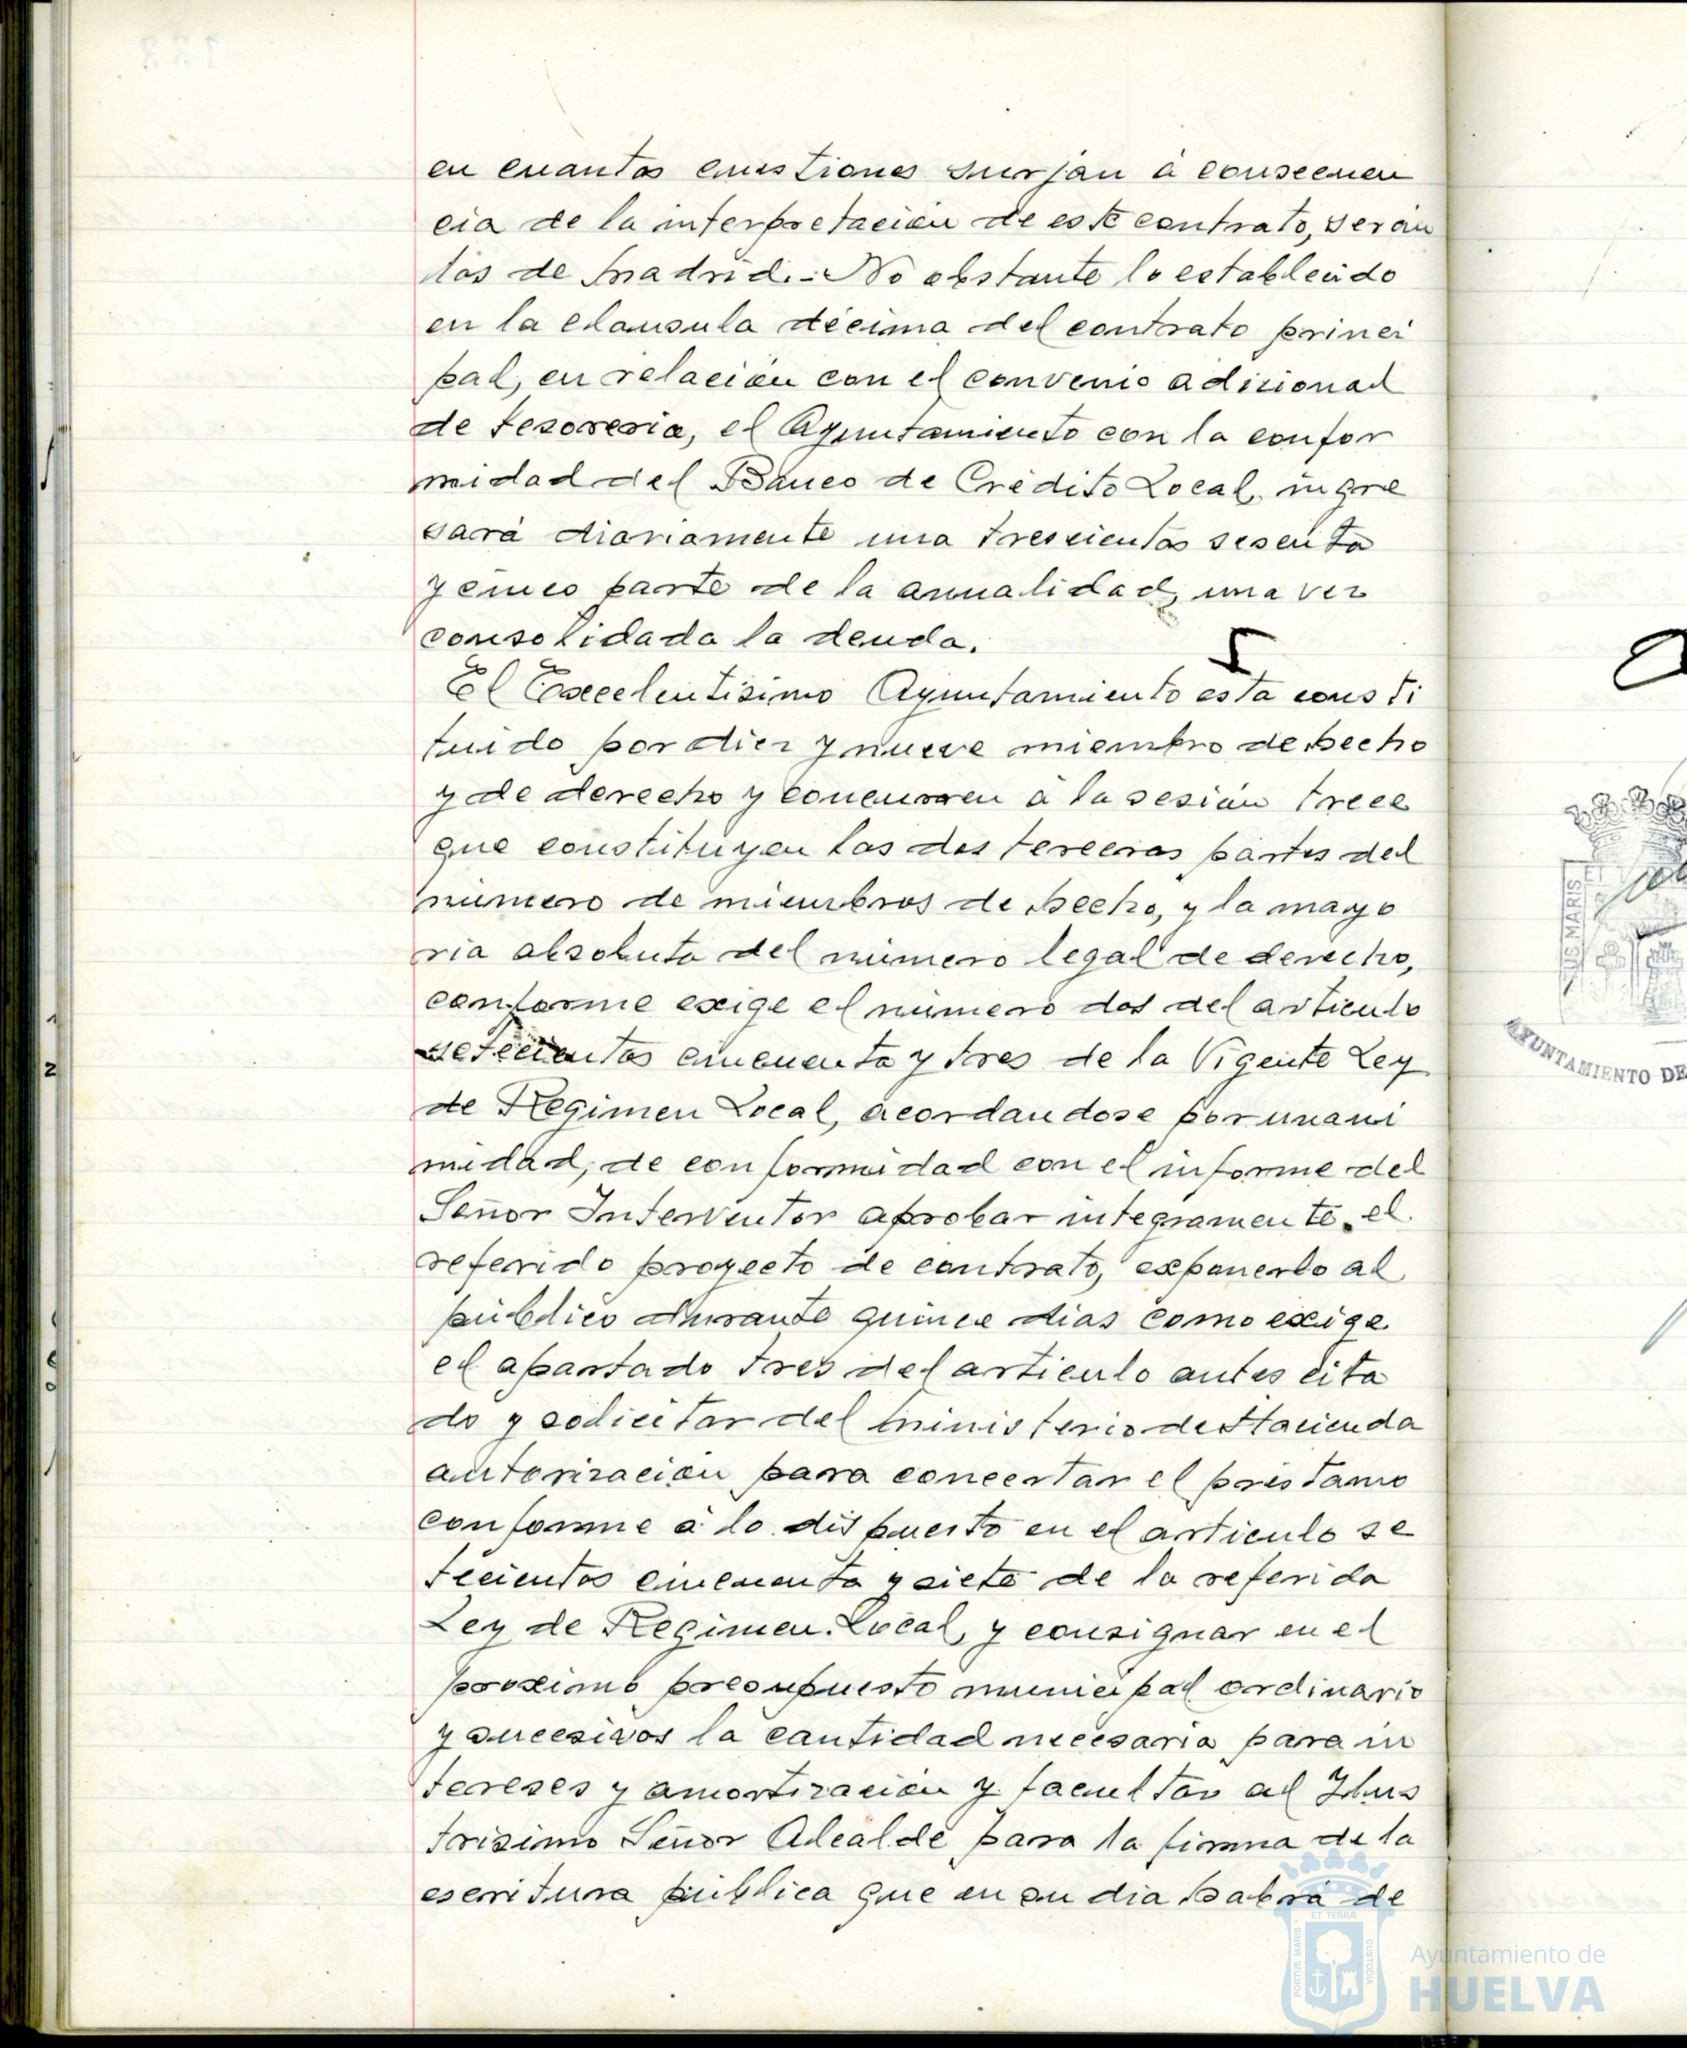 en cuantas cuestiones surjan á consecuen
cia de la interpretación de este contrato, serán
los de Madrid.- No obstante lo establecido
en la clausula décima del contrato princi
pal, en relación con el convenio adicional
de tesoreria, el Ayuntamiento con la confor
midad del Banco de Crédito Local, ingre
sará diariamente una trescientas sesenta
y cinco parte de la anualidad, una vez
consolidada la deuda.
El Excelentisimo Ayuntamiento esta consti
tuido por diez y nueve miembro de hecho
y de derecho y concurren á la sesión trece
que constituyen las dos terceras partes del
número de miembros de hecho, y la mayo
ria absoluta del número legal de derecho,
conforme exige el número dos del articulo
setecientos cincuenta y tres de la Vigente Ley
de Regimen Local, acordandose por unani
midad, de conformidad con el informe del
Señor Interventor aprobar integramente el
referido proyecto de contrato, exponerlo al
público durante quince dias como exige
el apartado tres del articulo antes cita
do y solicitar del Ministerio de Hacienda
autorización para concertar el préstamo
conforme á lo dispuesto en el articulo se
tecientos cincuenta y siete de la referida
Ley de Regimen Local, y consignar en el
proximo presupuesto municipal ordinario
y sucesivos la cantidad necesaria para in
tereses y amortización y facultar al Ilus
trisimo Señor Alcalde para la firma de la
escritura pública que en su dia habrá de
US MARIS
AYUNTAMIENTO DE
PORTUS MARIS
ET TERRÆ
CUSTODIA
Ayuntamiento de
HUELVA